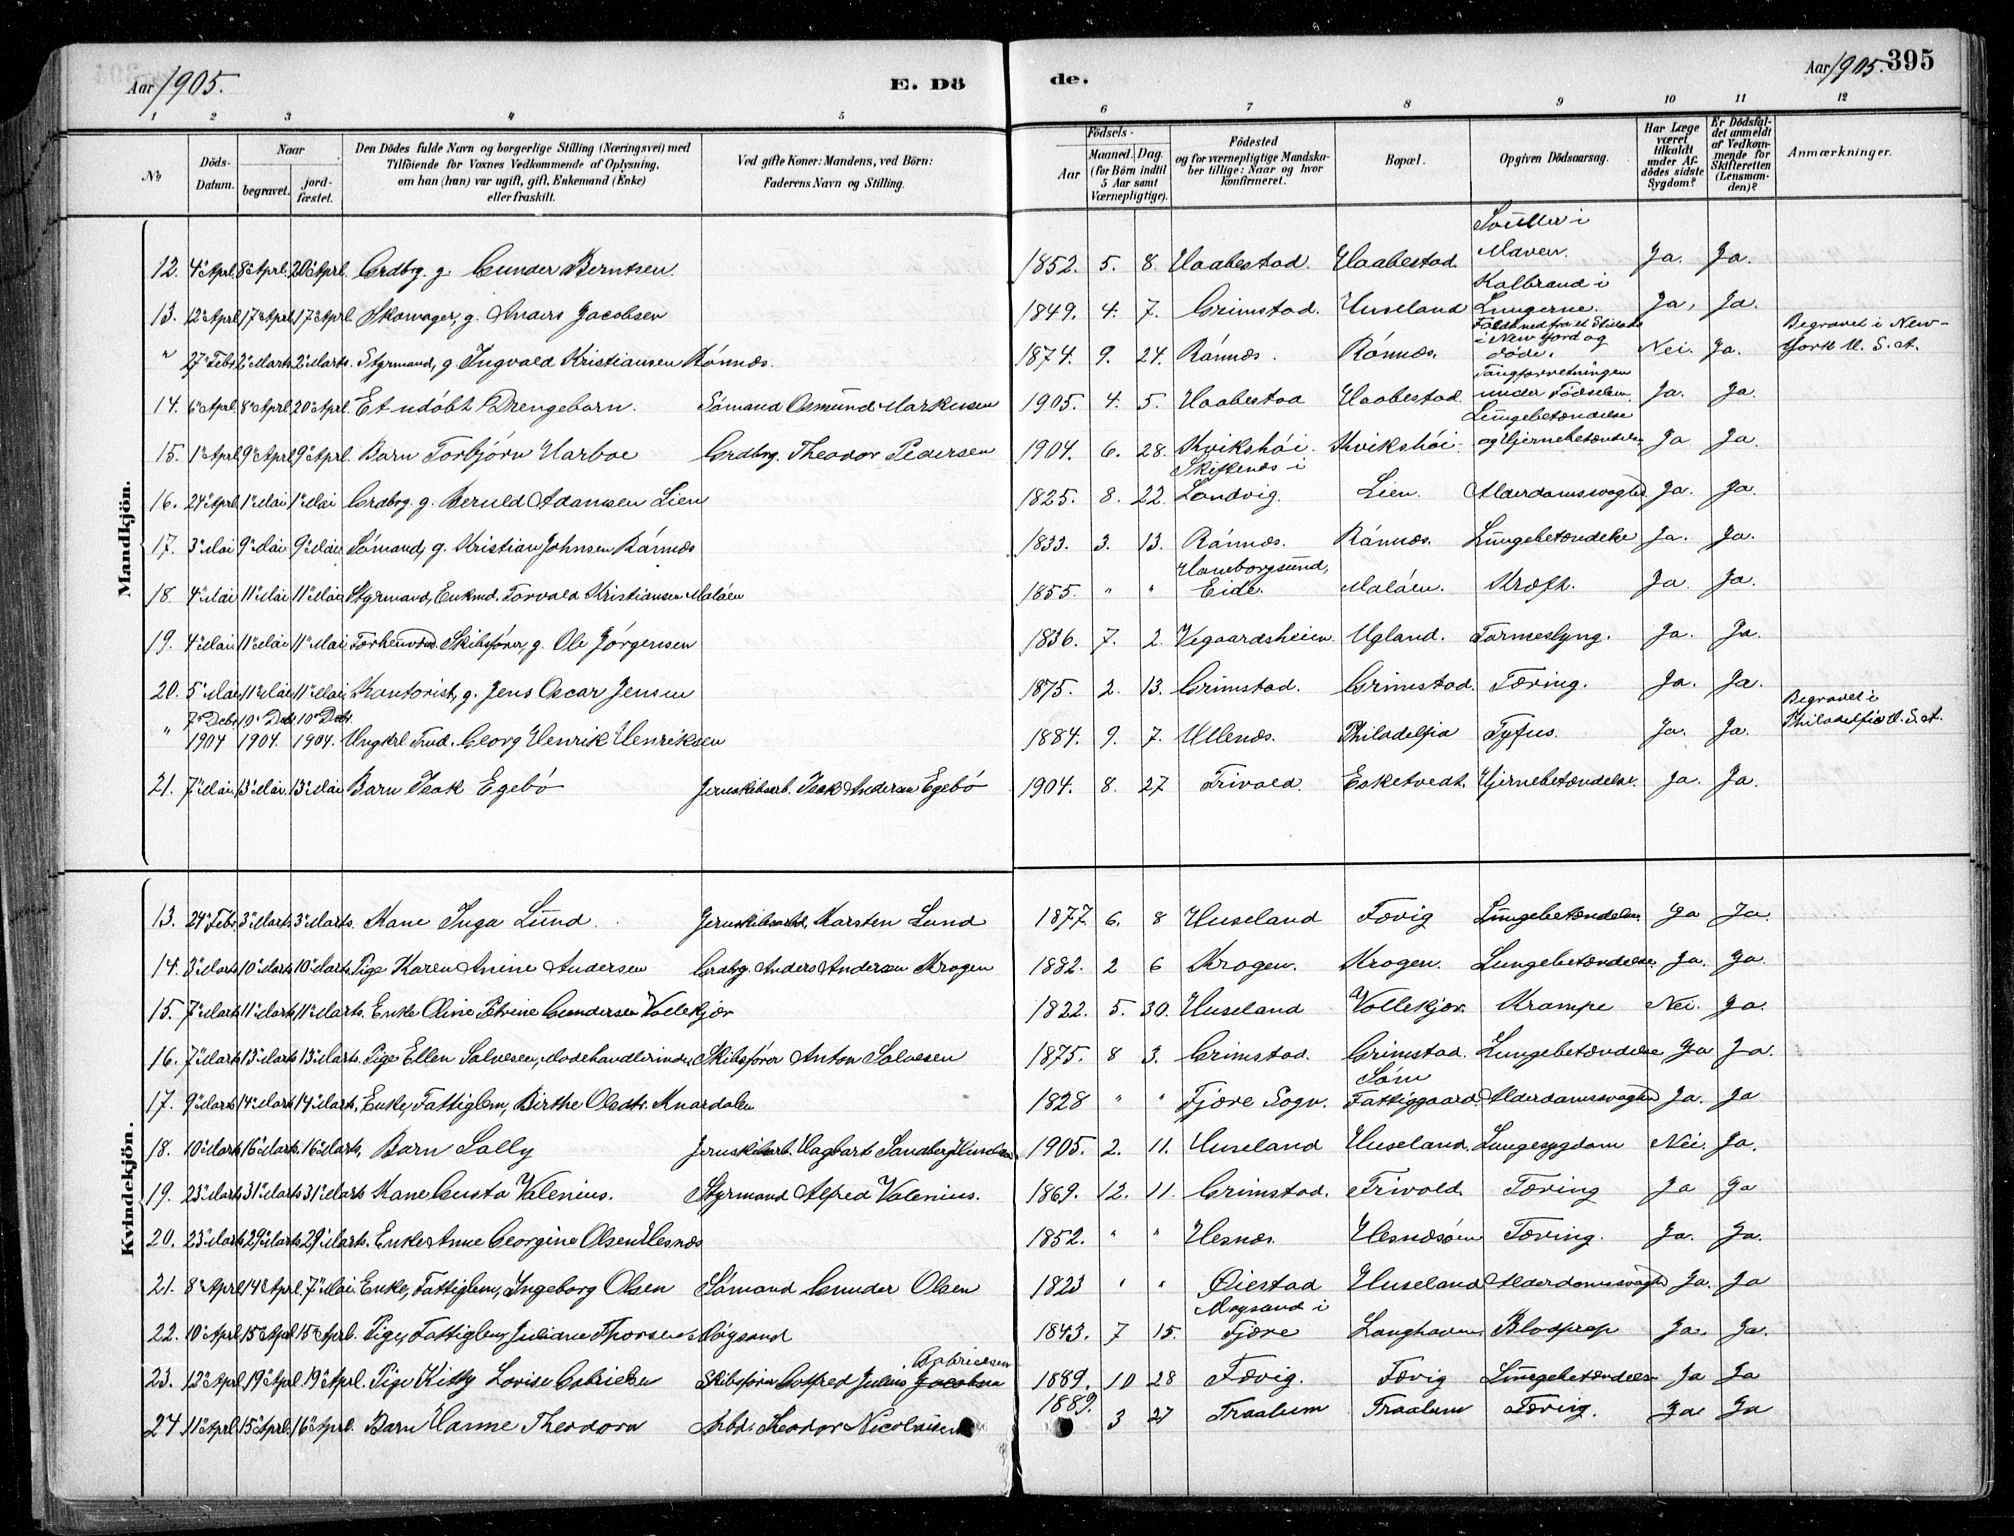 Aar 1905.
E. Dö
de.
Aar 1905. 395
1 2 3 4 5 6 7 8 9 10 11 12
No
Döds-Datum.
Naar
begravet.
jord-fæstet.
Den Dödes fulde Navn og borgerlige Stilling (Næringsvei) med
Tilföiende for Voxnes Vedkommende af Oplysning.
om han (hun) var ugift, gift, Enkemand (Enke)
eller fraskilt.
Ved gifte Koner: Mandens, ved Börn:
Faderens Navn og Stilling.
Födsels-
Aar
Maaned. Dag.
(for Börn indtil
5 Aar samt
Værnepligtige).
Födested
og for værnepligtige Mandska-
ber tillige: Naar og hvor
konfirmeret.
Bopæl.
Opgiven Dödsaarsag.
Har Læge
været
tilkaldt
under Af-
dödes sidste
Sygdom?
Er Dödsfal-
det anmeldt
af Vedkom-
mende for
Skifteretten
(Lensman-
den)?
Anmærkninger.
Mandkjön.
12. 4de Apl. 8de Apl. 20de Apl. Grdbrg. g. Gunder Berntsen. 1852. 5. 8. Haabestad. Haabestad. Svulster i Maven. Ja. Ja.
13. 12te Apl. 17de Apl. 17de Apl. Skomager, g. Anders Jacobsen 1849. 4. 7. Grimstad. Huseland Kolbrand i Lungerne. Ja, Ja.
" 27de Febr. 2den Marts. 2den Marts. Styrmand, g Ingvald Kristiansen Rónnæs. 1874. 9. 24. Rónnæs. Rónnæs. Faldt ned fra et Stillads i New York og døde. Nei. Ja. Begravet i New-York U. S. A.
14. 6te Apl. 8de Apl. 20de Apl. Et udóbt Drengebarn. Sómand Osmund Markusen 1905. 4. 5. Haabestad Haabestad. Tangforretningen under Fødselen. Ja. Ja.
15. 1ste Apl. 9de Apl. 9de Apl. Barn Torbjörn Harboe Grdbrg. Theodor Pedersen 1904. 6. 28. Kvikshói. Kvikshói. Lungebetændelse og Hjernebetændelse Ja Ja.
16. 24de Apl. 1ste Mai 1ste Mai Grdbrg. g. Beruld Adamsen Lien 1825. 8. 22. Skiftenæs i Landvig. Lien. Alderdomssvaghed Ja. Ja.
17. 3die Mai 9de Mai 9de Mai Sómand, g. Kristian Johnsen Rónnæs 1833. 3. 13. Rónnæs. Rónnæs. Lungebetændelse Ja. Ja.
18. 4de Mai 11te Mai 11te Mai Styrmand, Enkmd. Torvald Kristiansen Malóen 1855. " " Homborgsund, Eide. Malóen. Kræft. Ja. Ja.
19. 4de Mai 11te Mai 11te Mai Forhenvrd. Skibsfórer g. Ole Jórgensen 1836. 7. 2. Vegaardsheien Ugland. Tarmeslyng. Ja. Ja.
20. 5te Mai 11te Mai 11te Mai. Kontorist, g. Jens Oscar Jensen 1875. 2. 13. Grimstad. Grimstad. Tæring. Ja. Ja.
" 7de Decbr. 1904 10de Decbr. 1904. 10de Decbr. 1904. Ungkrl Tmd. Georg Henrik Henriksen 1884. 9. 7. Ullenæs. Philadelfia Tyfus. Ja. Ja. Begravet i Philadelfia U. S. A.
21. 7de Mai 13de Mai 13de Mai Barn Isak Egebó Jernskibsarb. Isak Andersen Egebó 1904. 8. 27 Frivold. Eskетvedt. Hjernebetændelse. Ja. Ja.
Kvindekjön.
13. 24de Febr. 3die Marts. 3die Marts. Kone Inga Lund. Jernskibsarbd. Karsten Lund 1877. 6. 8 Huseland Fævig Lungebetændelse. Ja Ja.
14. 3die Marts 10de Marts 10de Marts. Pige Karen Anine Andersen Grdbrg. Anders Andersen Krogen 1882. 2 6 Krogen. Krogen. Lungebetændelse. Ja. Ja.
15. 7de Marts 11te Marts 11te Marts. Enke Oline Petrine Gundersen Vollekjær 1822. 5. 30. Huseland Vollekjær. Krampe Nei. Ja.
16. 7de Marts 13de Marts. 13de Marts. Pige Ellen Salvesen, Modehandlerinde Skibsfórer Anton Salvesen 1875. 8 3. Grimstad. Grimstad. Lungebetændelse Ja Ja.
17. 9de Marts 14de Marts 14de Marts, Enke, Fattiglem, Birthe Olsdtr. Knardalen 1828 " " Fjære Sogn. Sóm Fattiggaard. Alderdomssvaghed Ja. Ja
18. 10de Marts 16de Marts. 16de Marts, Barn Sally Jernskibsarb. Hagbart Sandberg Huseland 1905. 2. 11. Huseland Huseland. Lungesygdom Nei. Ja.
19. 23de Marts 31te Marts 31te Marts Kone Gusta Valenius. Styrmand Alfred Valenius. 1869. 12. 11. Grimstad. Frivold. Tæring Ja Ja
20. 23de Marts 29de Marts. 29de Marts. Enke Anne Georgine Olsen Hesnæs 1852. " " Hesnæs. Hesnæsóen Tæring. Ja. Ja.
21. 8de Apl. 14de Apl. 7de Mai. Enke, Fattiglem, Ingeborg Olsen Sómand Gunder Olsen 1823 " " Øiestad Huseland Alderdomssvaghed Ja. Ja
22. 10de Apl. 15de Apl. 15de Apl. Pige, Fattiglem, Juliane Thorsen Moysand 1843. 7 15. Moysand i Fjære Langhaven, Blodprop Ja. Ja.
23. 12te Apl. 19de Apl. 19de Apl. Pige Kitty Lovise Gabrielsen Skibsfórer Gotfred Julius Jacobsen Gabrielsen 1889. 10 28 Fævig. Fævig Lungebetændelse Ja Ja
24 11te Apl. 15de Apl. 16de Apl. Barn Hanne Theodora Arbd. Theodor Nicolaisen 1889. 3 27 Traalum Traalum Tæring. Ja. Ja